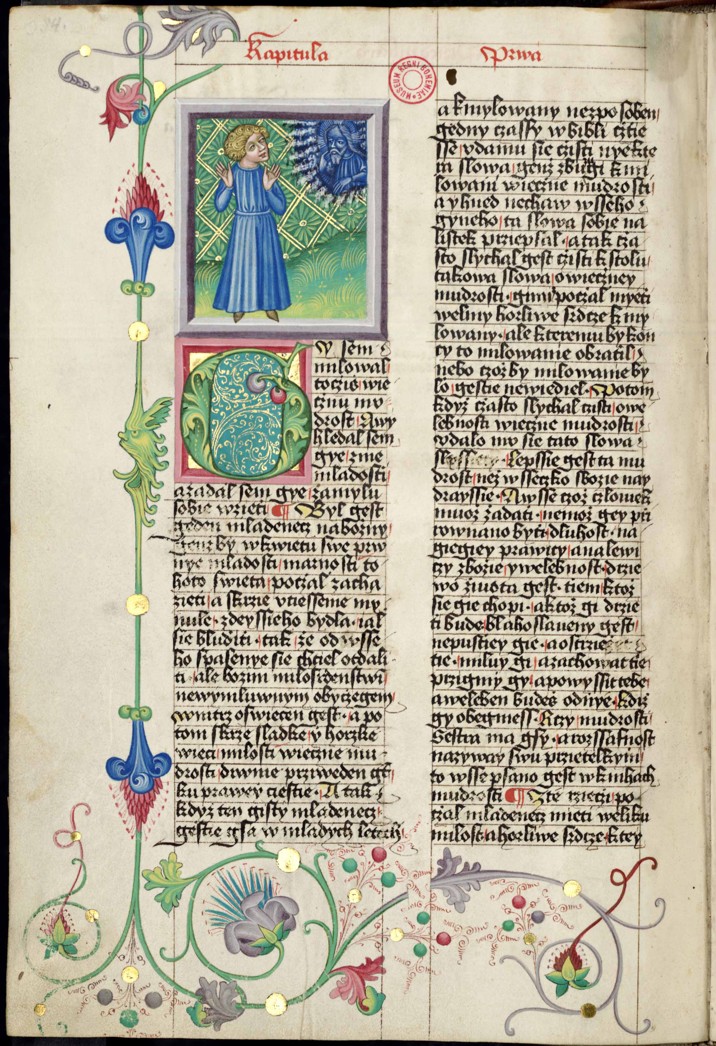 Kapitula
Prwa
MUSEUM REGNI BOHEMIAE
Tu sem
milowal
toczis wie
cznu mu
drost Awy
hledal sem
gye zme
mladosti
azadal sem gye zamylu
sobie wzieti ¶ Byl gest
geden mladenecz nabozny
genz by wkwietu swe prw
nye mladosti marnosti to
hoto swieta poczal zacha
zieti a skrzie vtiessenie my
nule zdeyssieho bydla ial
sie bluditi tak ze od wsse
ho spasenye sie chtiel otdali
ti ale bozim milosrdenstwi
newymluwnym obyczegem
wnitrz oswieten gest a po
tom skrze sladke y horzke
wieci milosti wieczne mu
drosti diwnie prziweden gt
ku prawey ciestie A tak
kdyz ten gisty mladenecz
gestie gsa w mladych letech
a kmylowany nezpo soben
gedny czassy w bibli cztie
sse vdamu sie czisti nyekte
ra slowa genz zbuzugi k mi
lowani wieczne mudrosti
a yhned nechaw wsseho
gyneho ta slowa sobie na
listek prziepsal a tak cza
sto slychal gest czisti k stolu
takowa slowa o wieczney
mudrosti gimz poczal myeti
welmy horliwe srdcze k my
lowany ale kteremu by kon
cy to milowanie obratil
nebo czoz by milowanie by
lo gestie newiediel Potom
kdyz czasto slychal czisti owe
lebnosti wieczne mudrosti
wdalo mu sie tato slowa
Lepssie gest ta mu
drost nez wsseczko sbozie nay
drayssie A wsse czoz czlowiek
muoz zadati nemoz gey przi
rownano byti dluhost na
giegiey prawicy a na lewi
czy zbozie y welebnost drzie
wo ziwota gest tiem ktoz
sie gie chopi a ktoz gi drzie
ti bude blahoslaweny gest
nepustiey gie a ostrzie
tie miluy gi a zachowa tie
przigmi gy a powyssit tebe
a weleben budes od nye kdiz
gy obegmess Rczy mudrosti
Sestra ma gsy a rozssafnost
nazyway swu przietelkyni
to wsse psano gest w knihach
mudrosti ¶ Z te rzieczi po
czal mladenecz mieti weliku
milost a horliwe srdcze k tey